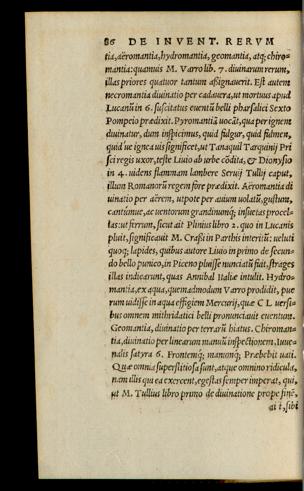 86 DE INVENT. RERVM
tia, aëromantia, hydromantia, geomantia, atq; chiro-
mantia: quamuis M. Varro lib. 7. diuinarum rerum,
illas priores quatuor tantum aßignauerit. Est autem
necromantia diuinatio per cadauera, ut mortuus apud
Lucanũ in 6. suscitatus euentũ belli pharsalici Sexto
Pompeio prædixit. Pyromantiã uocãt, qua per ignem
diuinatur, dum inspicimus, quid fulgur, quid fulmen,
quid ue ignea uis significet, ut Tanaquil Tarquinij Pri
sci regis uxor, teste Liuio ab urbe cõdita, & Dionysio
in 4. uidens flammam lambere Seruij Tullij caput,
illum Romanorũ regem fore prædixit. Aëromantia di
uinatio per aërem, utpote per auium uolatũ, gustum,
cantumue, ac uentorum grandinumq; insuetas procel-
las: ut ferrum, sicut ait Plinius libro 2. quo in Lucanis
pluit, significauit M. Craßi in Parthis interitũ: ueluti
quoq; lapides, quibus autore Liuio in primo de secun-
do bello punico, in Piceno pluisse nunciatũ fuit, strages
illas indicarunt, quas Annibal Italiæ intulit. Hydro-
mantia, ex aqua, quemadmodum Varro prodidit, pue
rum uidisse in aqua effigiem Mercurij, quæ C L uersi-
bus omnem mithridatici belli pronunciauit euentum.
Geomantia, diuinatio per terrarũ hiatus. Chiroman-
tia, diuinatio per linearum manuũ inspectionem, Iuue-
nalis satyra 6. Frontemq; manumq; Præbebit uati.
Quæ omnia superstitiosa sunt, atque omnino ridicula,
nam illis qui ea exercent, egestas semper imperat, qui,
ut M. Tullius libro primo de diuinatione prope finẽ,
ait, sibi